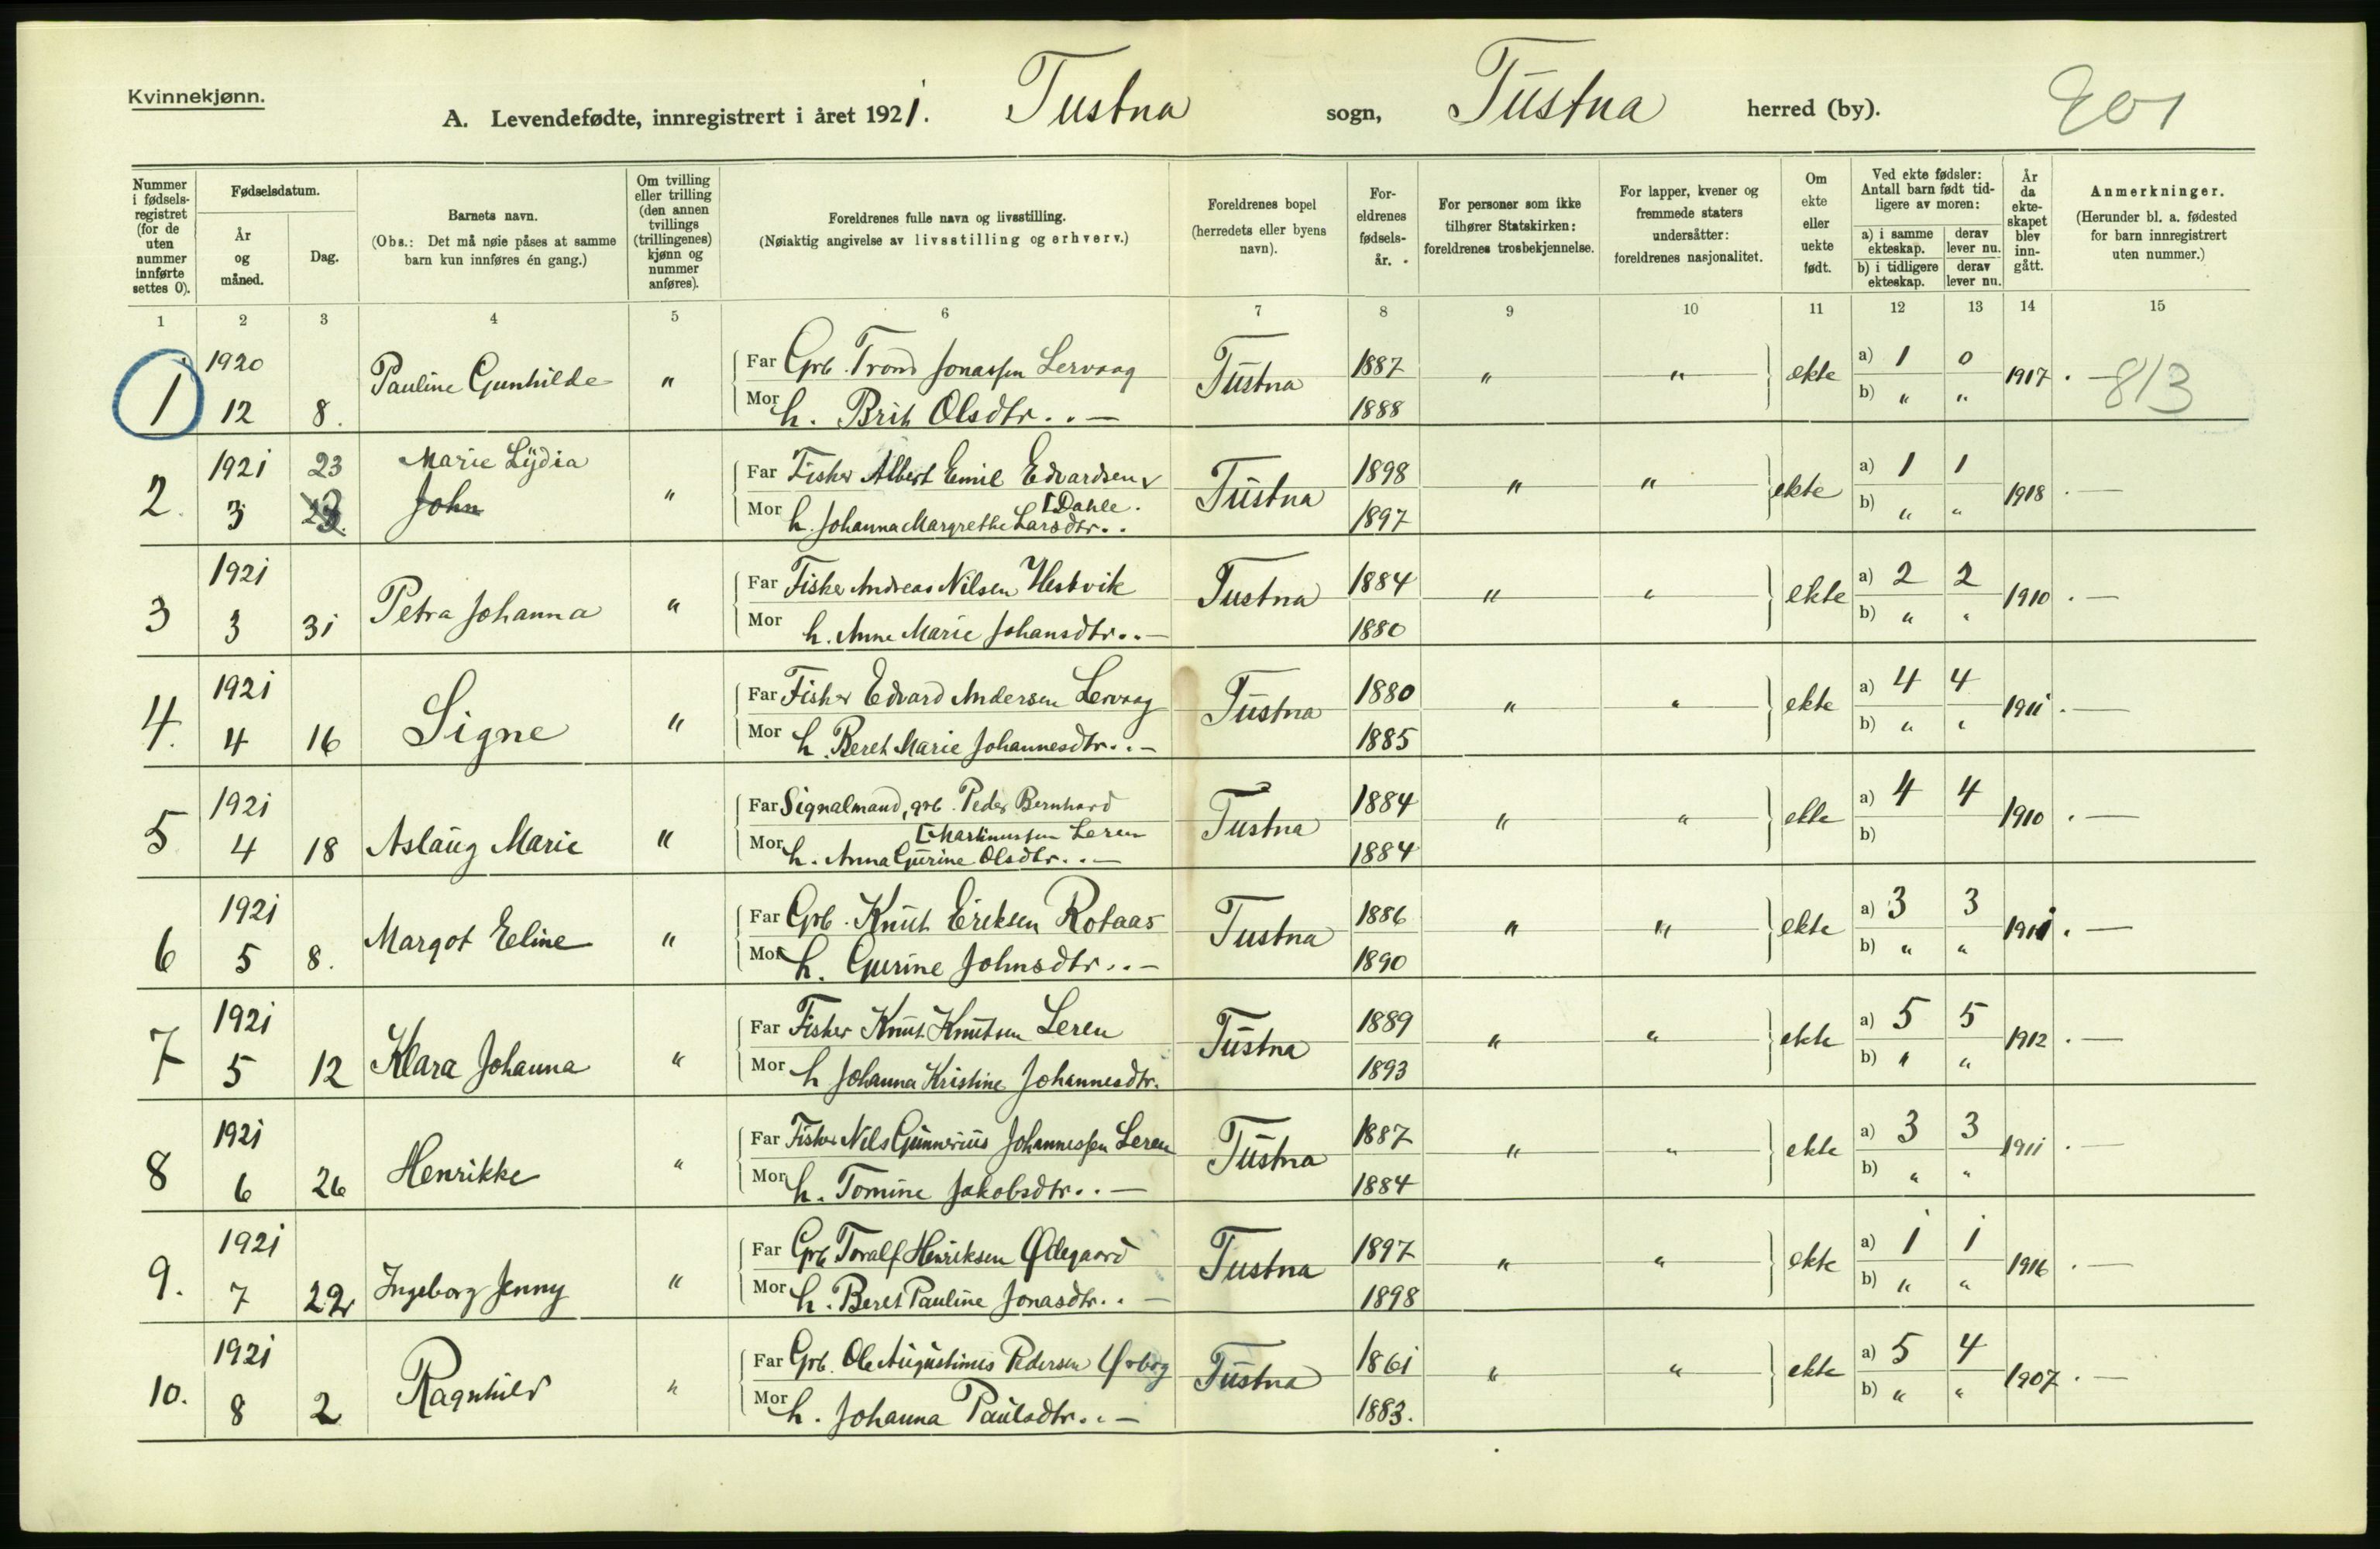 Kvinnekjønn.
A. Levendefødte, innregistrert i året 1921. Tustna sogn, Tustna herred (by).
Nummer i fødsels-registret (for de uten nummer innførte settes 0).
Fødselsdatum.
År og måned.
Dag.
Barnets navn.
(Obs.: Det må nøie påses at samme barn kun innføres én gang.)
Om tvilling eller trilling (den annen tvillings (trillingenes) kjønn og nummer anføres).
Foreldrenes fulle navn og livsstilling.
(Nøiaktig angivelse av livsstilling og erhverv.)
Foreldrenes bopel (herredets eller byens navn).
For-eldrenes fødsels-år.
For personer som ikke tilhører Statskirken: foreldrenes trosbekjennelse.
For lapper, kvener og fremmede staters undersåtter: foreldrenes nasjonalitet.
Om ekte eller uekte født.
Ved ekte fødsler: Antall barn født tid-ligere av moren:
a) i samme ekteskap. derav lever nu.
b) i tidligere ekteskap. derav lever nu.
År da ekte-skapet blev inn-gått.
Anmerkninger.
(Herunder bl. a. fødested for barn innregistrert uten nummer.)
1 2 3 4 5 6 7 8 9 10 11 12 13 14 15
1 1920 12 8. Pauline Gunhilde " Far Grb. Trond Jonassen Lervaag Tustna 1887 " " ekte a) 1 0 1917. — 813
Mor h. Brit Olsdtr. . — 1888 b) " "
2. 1921 3 23 23. Marie Lydia John " Far Fisker Albert Emil Edvardsen Tustna 1898 " " ekte a) 1 1 1918 . —
[Dahle.
Mor h. Johanna Margrethe Larsdtr. . 1897 b) " "
3 1921 3 31 Petra Johanna " Far Fisker Andreas Nilsen Hestvik Tustna 1884 " " ekte a) 2 2 1910 . —
Mor h. Anne Marie Johansdtr. . — 1880 b) " "
4. 1921 4 16 Signe " Far Fisker Edvard Andersen Lervaag Tustna 1880 " " ekte a) 4 4 1911 . —
Mor h. Beret Marie Johannesdtr. . — 1885 b) " "
5 1921 4 18 Aslaug Marie " Far Signalmand, grb. Peder Bernhard Tustna 1884 " " ekte a) 4 4 1910 . —
[Martinussen Leren
Mor h. Anna Gurine Olsdtr. . — 1884 b)
6 1921 5 8. Margot Eline " Far Grb. Knut Eriksen Rotaas Tustna 1886 " " ekte a) 3 3 1911 . —
Mor h. Gurine Johnsdtr. . — 1890 b) " "
7 1921 5 12 Klara Johanna " Far Fisker Knut Knutsen Leren Tustna 1889 " " ekte a) 5 5 1912 . —
Mor h Johanna Kristine Johannesdtr. 1893 b) " "
8 1921 6 26 Henrikke " Far Fisker Nils Gunnerius Johannessen Leren Tustna 1887 " " ekte a) 3 3 1911 . —
Mor h. Tomine Jakobsdtr. . — 1884 b) " "
9. 1921 7 22 Ingeborg Jenny " Far Grb Toralf Henriksen Ødegaard Tustna 1897 " " ekte a) 1 1 1916 . —
Mor h. Beret Pauline Jonasdtr. . — 1898 b) " "
10. 1921 8 2 Ragnhild " Far Grb. Ole Augustinus Pedersen Tustna 1861 " " ekte a) 5 4 1907 . —
Mor h. Johanna Paulsdtr. . — 1883. b) " "